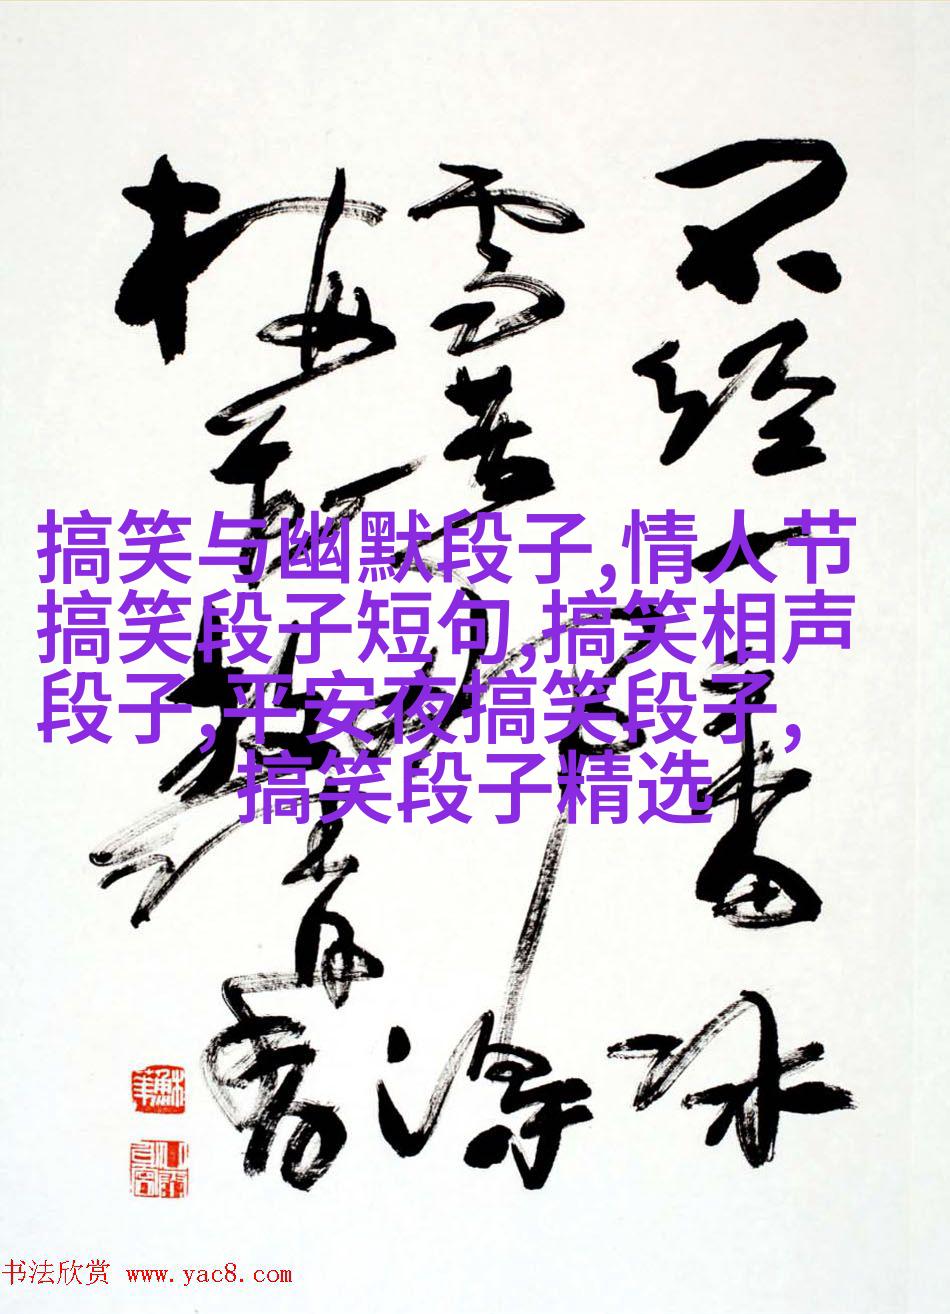 不经一番冰
雪苦 得
梅 清香
搞笑与幽默段子,情人节
搞笑段子短句,搞笑相声
段子,平安夜搞笑段子,
搞笑段子精选
书法欣赏 www.yac8.com